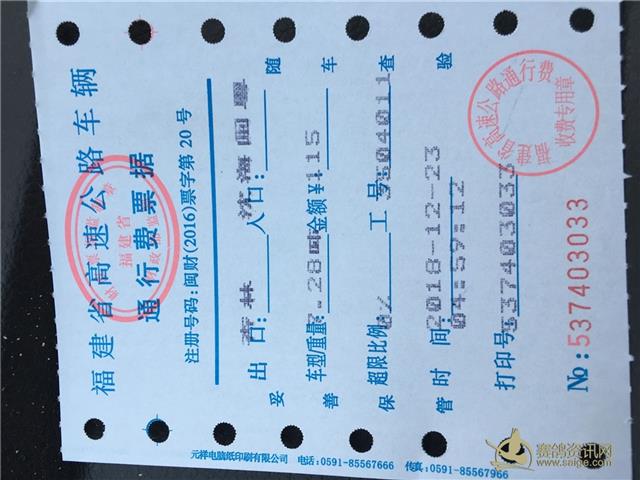 福建省高速公路车辆
通行费票据
福建省
注册号码:闽财(2016)票字第20号
出口: 入口: 沈海闽粤
车型/重量: 金额¥:115
超限比例: 0% 工号: 3504011
时间: 2018-12-23
04:59:12
打印号: 537403033
№:537403033
妥善保管 随车查验
福建省高速公路通行费
收费专用章
元祥电脑纸印刷有限公司 电话:0591-85567666 传真:0591-85567966
赛鸽资讯网
www.saige.com